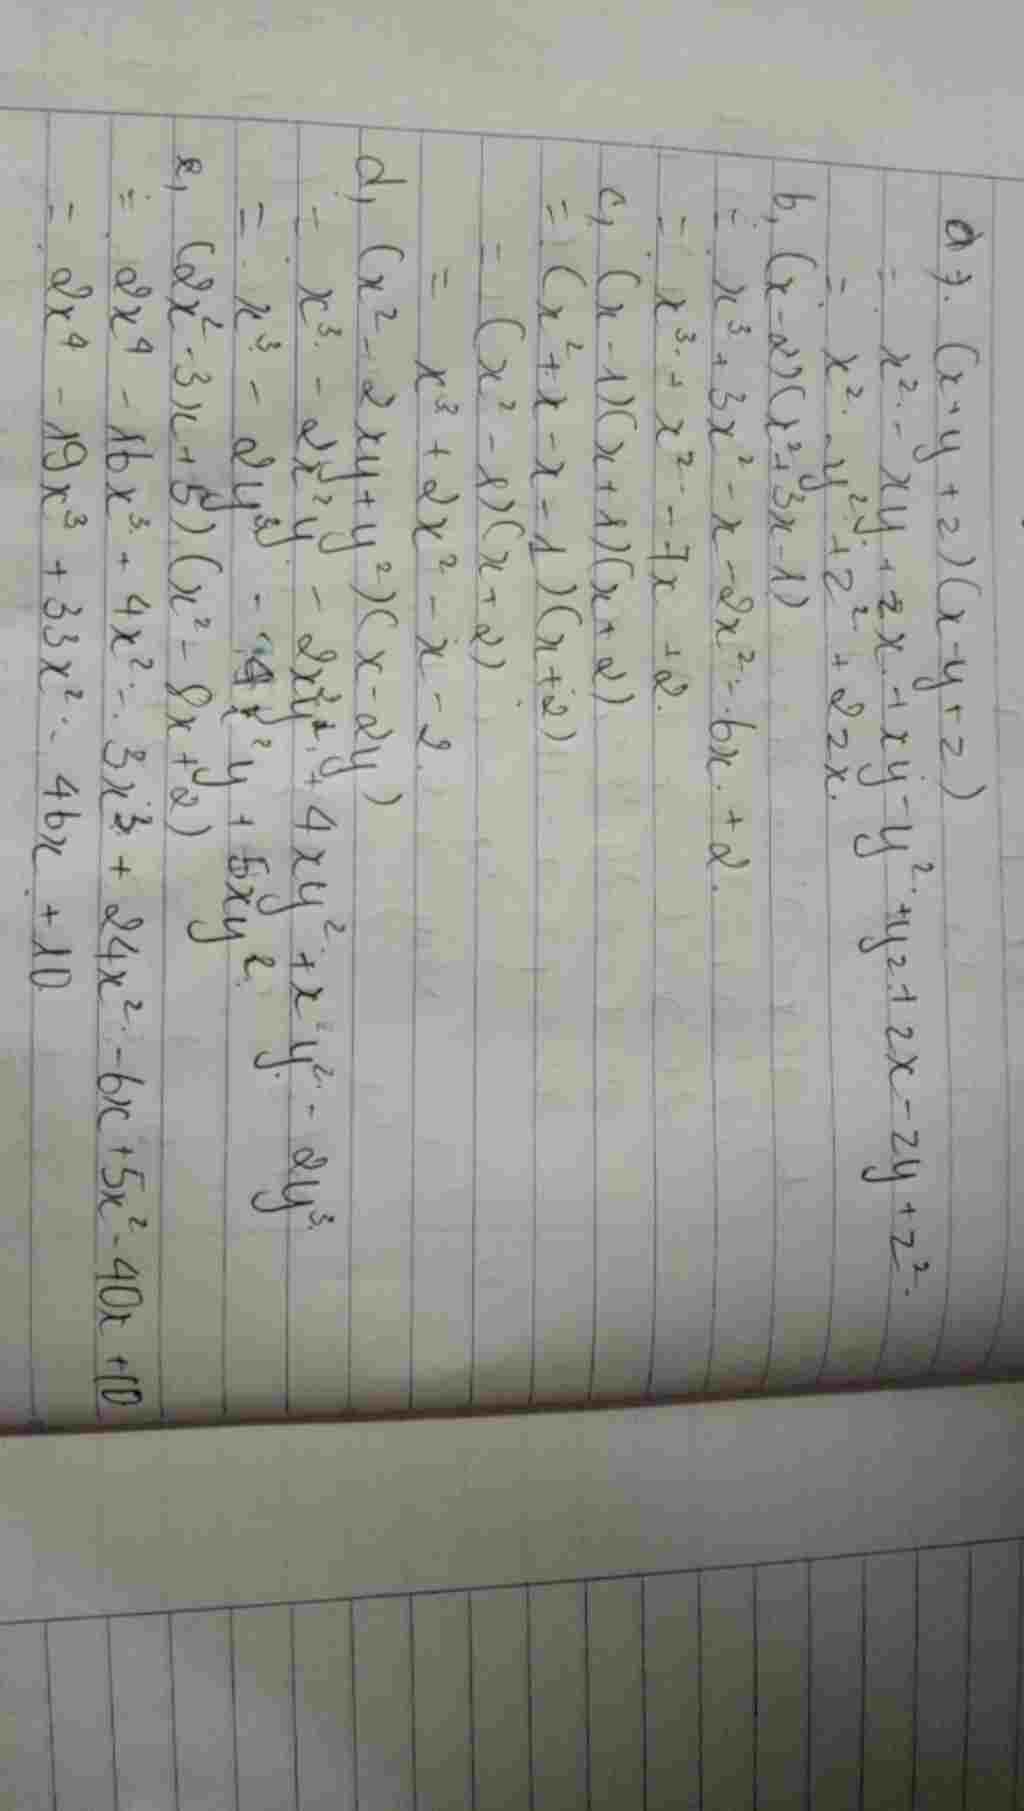 a). (x+y+z)(x-y+z)
= x². - xy + zx. + xy - y². + yz. + zx - zy + z².
= x². - y². + z². + 2zx.
b, (x-2)(x²+3x-1)
= x³ + 3x² - x - 2x². - 6x. + 2.
= x³. + x² - 7x + 2.
c, (x-1)(x+1)(x+2)
= (x² + x - x - 1)(x+2)
= (x² - 1)(x+2)
= x³ + 2x² - x - 2.
d, (x² - 2xy + y²)(x - 2y)
= x³. - 2x²y - 2x²y. + 4xy². + xy². - 2y³.
= x³ - 2y³ - 4x²y + 5xy².
e, (2x² - 3x + 5).(x² - 8x + 2)
= 2x⁴ - 16x³ + 4x². - 3x³ + 24x². - 6x + 5x² - 40x + 10
= 2x⁴ - 19x³ + 33x². - 46x + 10